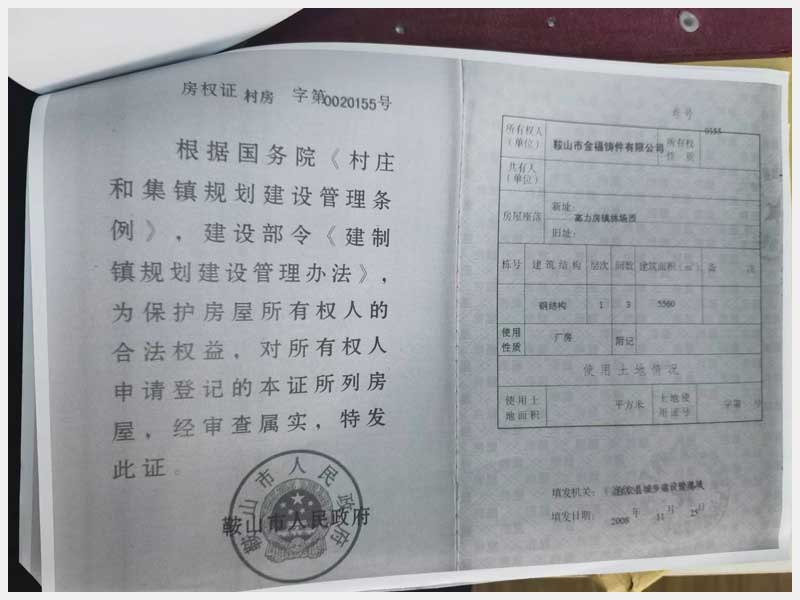 房权证 村房 字第0020155号
根据国务院《村庄
和集镇规划建设管理条
例》，建设部令《建制
镇规划建设管理办法》，
为保护房屋所有权人的
合法权益，对所有权人
申请登记的本证所列房
屋，经审查属实，特发
此证。
鞍山市人民政府
鞍山市人民政府
所有权人（单位） 鞍山市金福铸件有限公司 所有权性质
共有人（单位）
房屋座落 新址： 高力房镇林场西
旧址：
栋号 建筑结构 层次 间数 建筑面积（m²） 备
钢结构 1 3 5560
使用性质 厂房 附记
使用土地情况
使用土地面积 平方米 土地使用证号 字第 号
填发机关：
填发日期： 2008 年 11 月 25 日